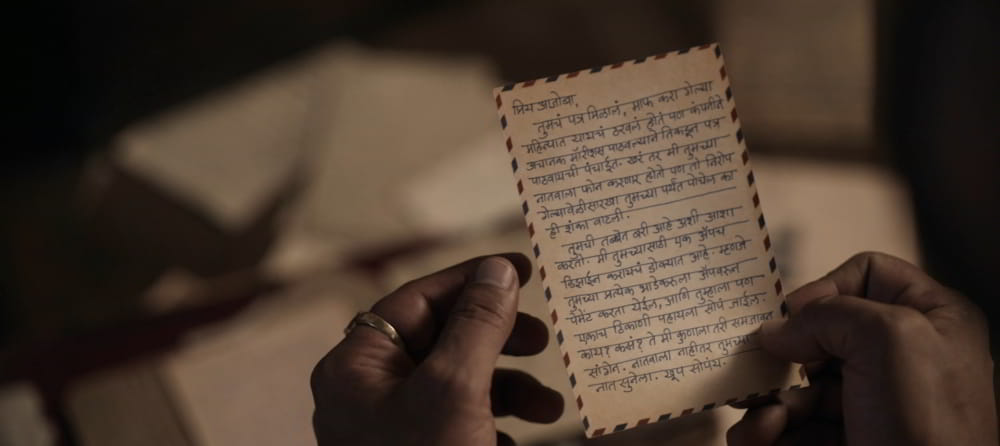 प्रिय आजोबा,
तुमचं पत्र मिळालं, माफ करा गेल्या
महिन्यात यायचं ठरवलं होतं पण कंपनीने
अचानक मॉरीशस पाठवल्याने तिकडून पत्र
पाठवायची पंचाईत. खरं तर मी तुमच्या
नातवाला फोन करणार होते पण तो निरोप
गेल्यावेळीसारखा तुमच्या पर्यंत पोचेल का
ही शंका वाटली.
तुमची तब्बेत बरी आहे अशी आशा
करतो. मी तुमच्यासाठी एक ॲपच
डिझाईन करायचं डोक्यात आहे. म्हणजे
तुमच्या प्रत्येक भाडेकरूला ॲपवरून
पेमेंट करता येईल, आणि तुम्हाला पण
एकाच ठिकाणी पहायला सोपं जाईल.
काय? कसं? ते मी कुणाला तरी समजावत
सांगेन. नातवाला नाहीतर तुमच्या
नातसुनेला. खूप सोपंय.